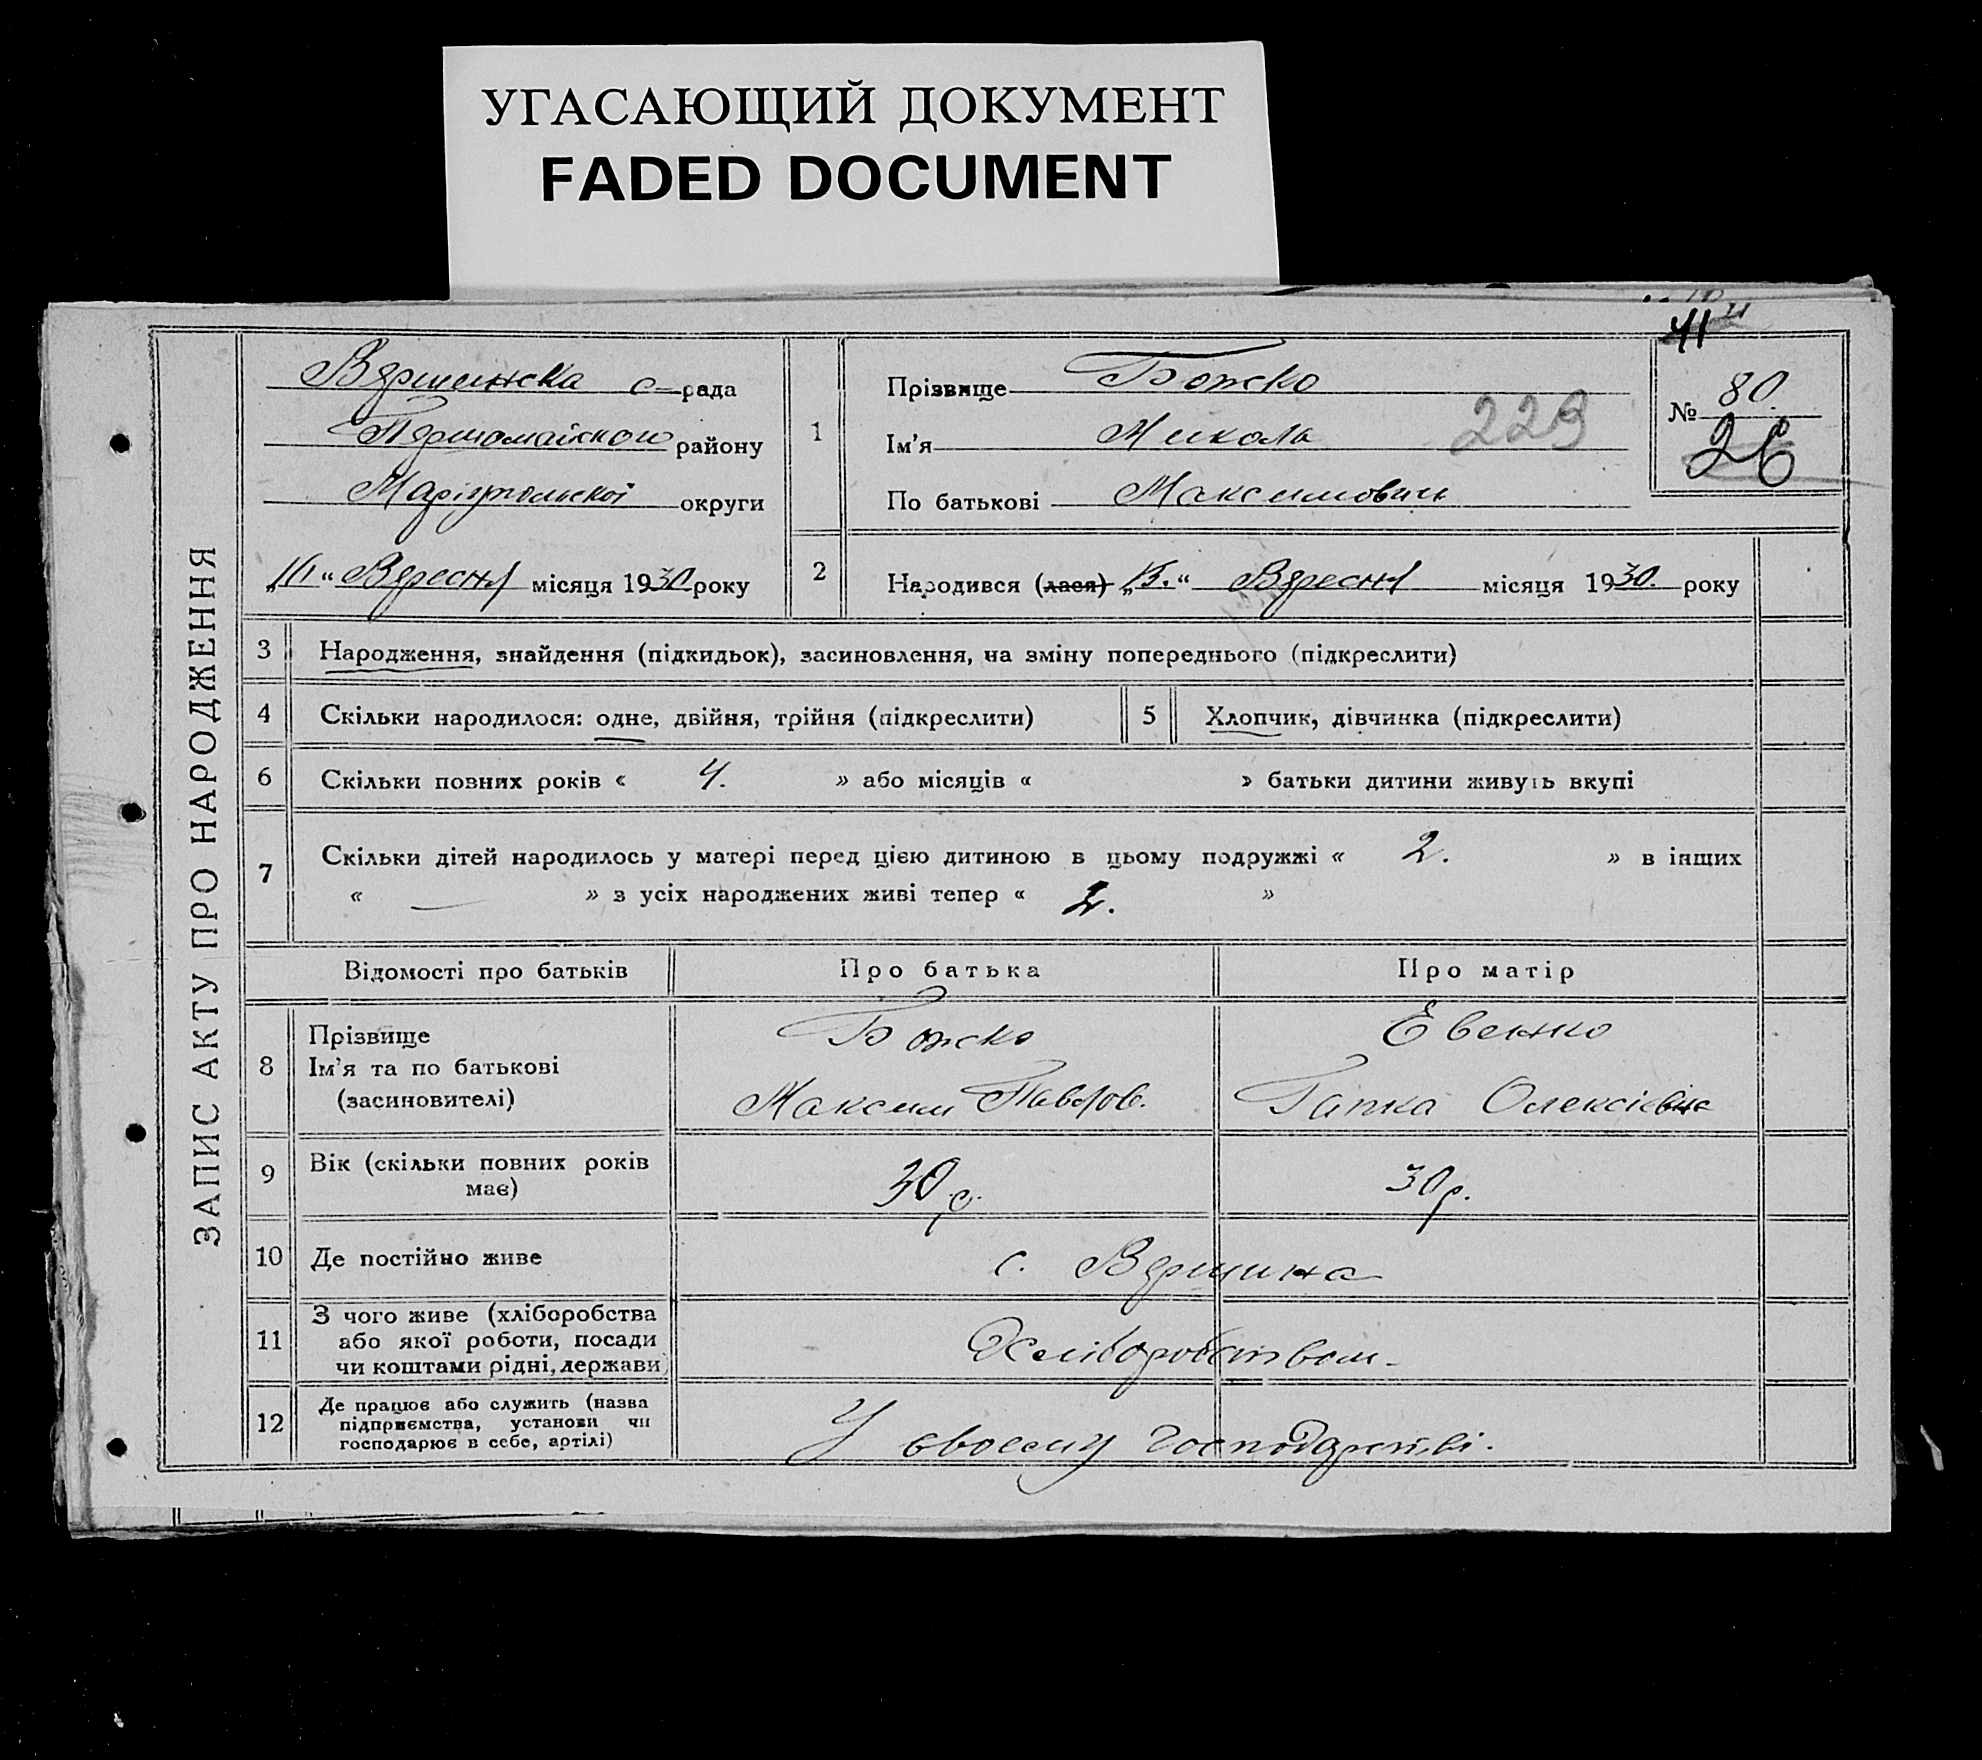 УГАСАЮЩИЙ ДОКУМЕНТ
FADED DOCUMENT
41
ЗАПИС АКТУ ПРО НАРОДЖЕННЯ
Вершинска с-рада
Першомайского району
Маріупольскої округи
Вересня місяця 1930 року
1
Прізвище Божко
Ім'я Микола
229
По батькові Максимович
№ 80.
26
2
Народився (лася) „15.“ Вересня місяця 1930. року
3 Народження, знайдення (підкидьок), засиновлення, на зміну попереднього (підкреслити)
4 Скільки народилося: одне, двійня, трійня (підкреслити)
5 Хлопчик, дівчинка (підкреслити)
6 Скільки повних років « 4. » або місяців « » батьки дитини живуть вкупі
7 Скільки дітей народилось у матері перед цією дитиною в цьому подружжі « 2. » в інщих
« — » з усіх народжених живі тепер « 2. »
Відомості про батьків Про батька Про матір
8 Прізвище Божко Евенко
Ім'я та по батькові
(засиновителі) Максим Гапка Олексієвна
9 Вік (скільки повних років
має) 30 р. 30 р.
10 Де постійно живе с. Вершина
11 З чого живе (хліборобства
або якої роботи, посади
чи коштами рідні, держави) Хліборобством.
12 Де працює або служить (назва
підприємства, установи чи
господарює в себе, артілі) У своєму господарстві.